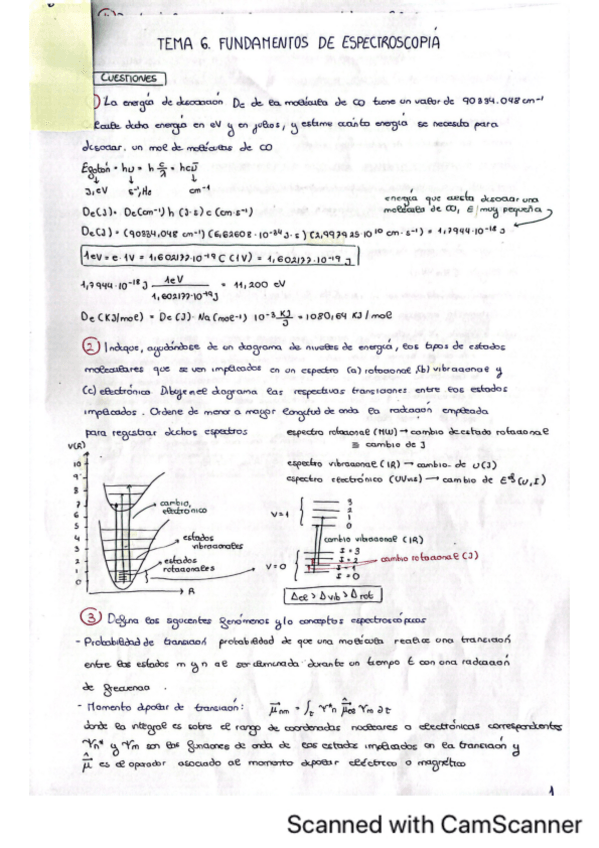 TEMA 6. FUNDAMENTOS DE ESPECTROSCOPIA
CUESTIONES
1) La energía de disociación De de la molécula de CO tiene un valor de 90334.048 cm⁻¹
dicha energía en eV y en julios, y estime cuánta energía se necesita para
disociar, un mol de moléculas de CO
Efotón = hυ = h c/λ = hcῡ
J, eV s⁻¹, Hz cm⁻¹
energía que cuesta disociar una
molécula de CO, E/muy pequeña
De(J) = De(cm⁻¹) h (J·s) c (cm·s⁻¹)
De(J) = (90334,048 cm⁻¹) (6,62608·10⁻³⁴ J·s) (2,997925·10¹⁰ cm·s⁻¹) = 1,7944·10⁻¹⁸ J
1eV = e·1V = 1,602177·10⁻¹⁹ C (1V) = 1,602177·10⁻¹⁹ J
1,7944·10⁻¹⁸ J 1eV / 1,602177·10⁻¹⁹ J = 11,200 eV
De (KJ/mol) = De (J) · Na (mol⁻¹) 10⁻³ KJ/J = 1080,64 KJ/mol
2) Indique, ayudándose de un diagrama de niveles de energía, los tipos de estados
moleculares que se ven implicados en un espectro (a) rotacional, (b) vibracional y
(c) electrónico Dibuje en el diagrama las respectivas transiciones entre los estados
implicados. Ordene de menor a mayor longitud de onda la radiación empleada
para registrar dichos espectros
espectro rotacional (MW) → cambio de estado rotacional
≡ cambio de J
espectro vibracional (IR) → cambio de υ(J)
espectro electrónico (UVvis) → cambio de (υ, J)
V(R)
10
9
8
7
6
5
4
3
2
1
0
R
cambio electrónico
estados vibracionales
estados rotacionales
V=1
3
2
1
0
cambio vibracional (IR)
V=0
J=3
J=2
J=1
J=0
cambio rotacional (J)
Δel > Δvib > Δrot
3) Defina los siguientes fenómenos y/o conceptos espectroscópicos
- Probabilidad de transición probabilidad de que una molécula realice una transición
entre los estados m y n al ser iluminada durante un tiempo t con una radiación
de frecuencia
- Momento dipolar de transición: μnm = ∫ Ψ*n μ Ψm ∂τ
donde la integral es sobre el rango de coordenadas nucleares o electrónicas correspondientes
Ψn* y Ψm son las funciones de onda de los estados implicados en la transición y
μ es el operador asociado al momento dipolar eléctrico o magnético
1
Scanned with CamScanner